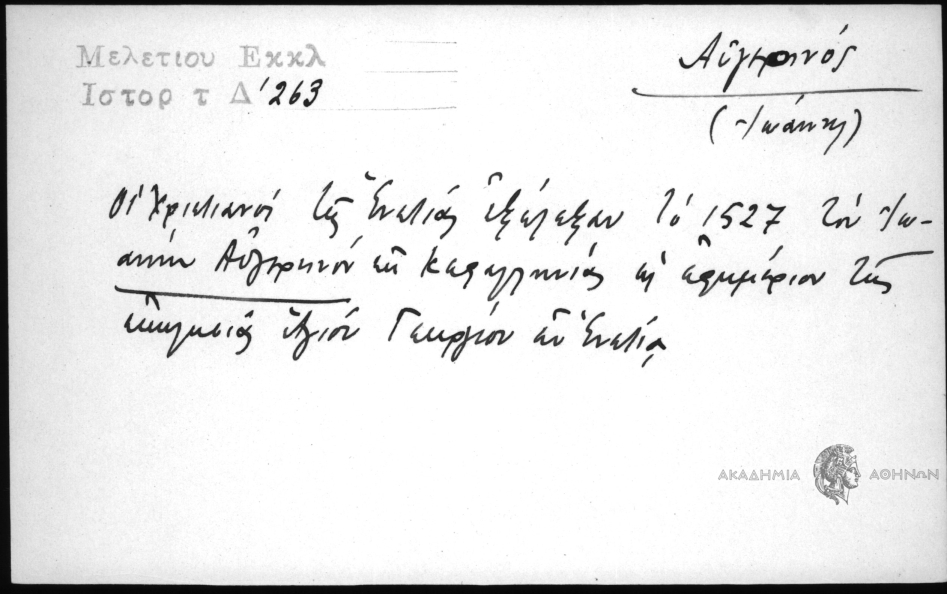 Μελετίου Εκκλ
Ιστορ τ Δ' 263
Αὐγερινός
(Ἰωάννης)
Οἱ Χριστιανοί τῆς Ἑνετίας ἐξέλεξαν τό 1527 τόν Ἰω-
άννην Αὐγερινόν ἐκ Κεφαλληνίας εἰς ἐφημέριον τῆς
ἐκκλησίας ἁγίου Γεωργίου ἐν Ἑνετίᾳ
ΑΚΑΔΗΜΙΑ ΑΘΗΝΩΝ